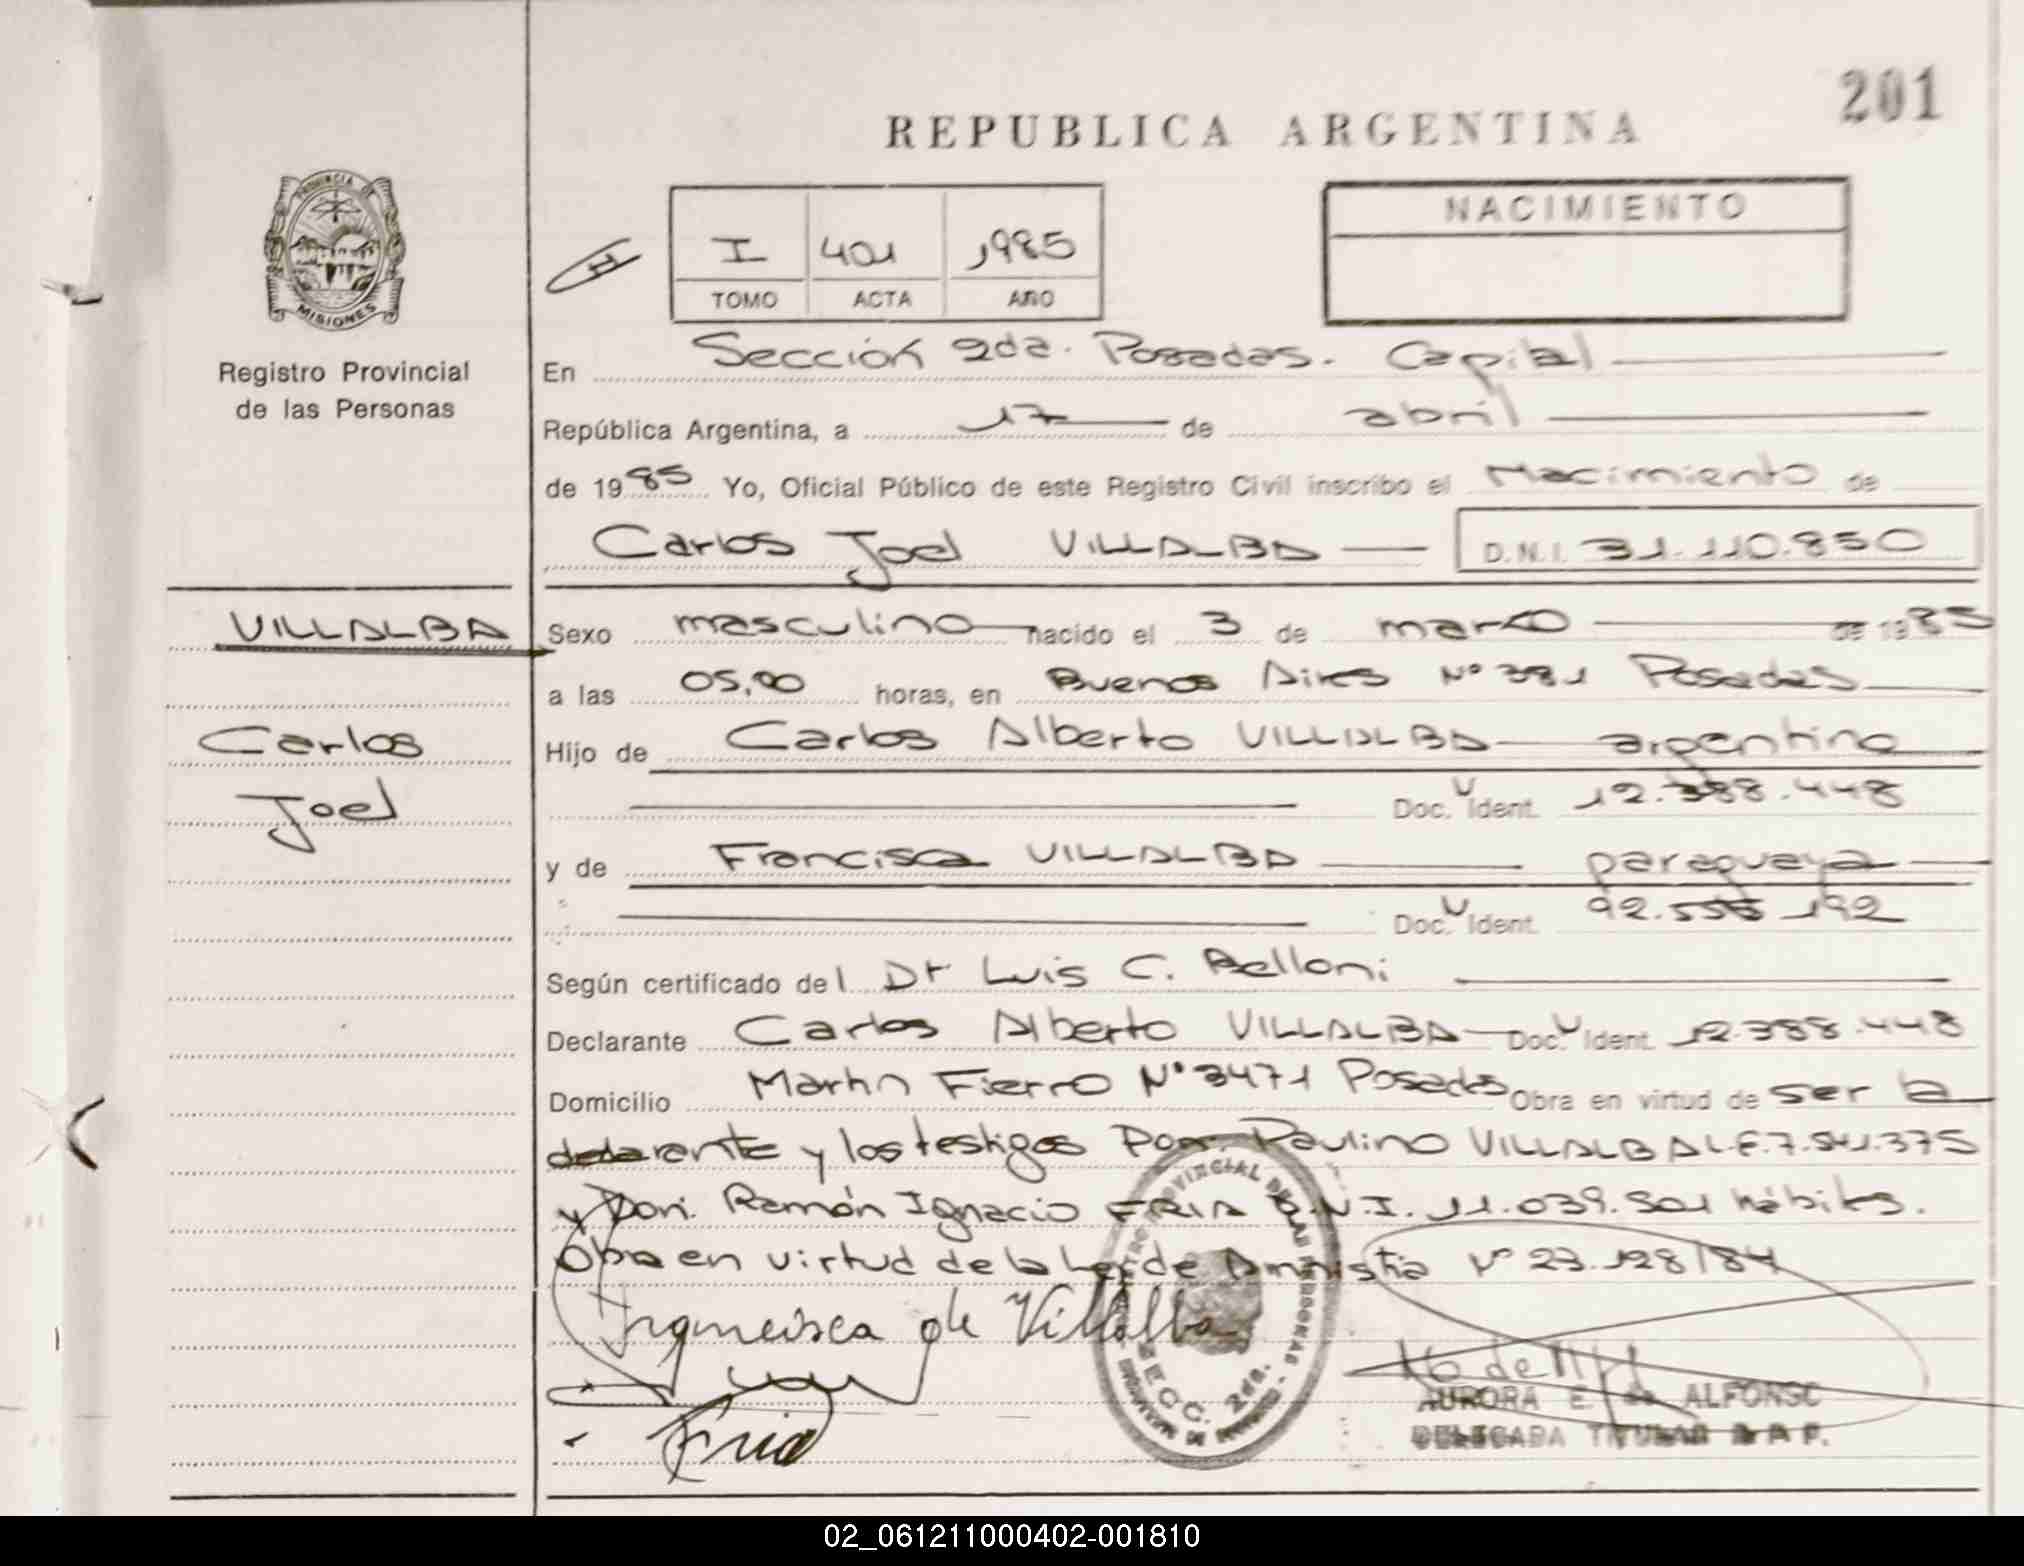 201
REPUBLICA ARGENTINA
PROVINCIA DE
MISIONES
Registro Provincial
de las Personas
I 401 1985
TOMO ACTA AÑO
NACIMIENTO
En Sección 2da. Posadas. Capital
República Argentina, a 17 de abril
de 1985 Yo, Oficial Público de este Registro Civil inscribo el Nacimiento de
Carlos Joel VILLALBA D.N.I. 31.110.850
VILLALBA
Carlos
Joel
Sexo masculino nacido el 3 de marzo de 1985
a las 05,00 horas, en Buenos Aires Nº 381 Posadas
Hijo de Carlos Alberto VILLALBA argentino
Doc. Ident. 12.388.448
y de Francisca VILLALBA paraguaya
Doc. Ident. 92.555 192
Según certificado del Dr Luis C. Belloni
Declarante Carlos Alberto VILLALBA Doc. Ident. 12.388.448
Domicilio Martin Fierro Nº 3471 Posadas Obra en virtud de ser la
declarante y los testigos Don. Paulino VILLALBA L.E.7.541.375
y Don. Ramón Ignacio FRIA D.N.I. 11.039.501 hábiles.
Obra en virtud de la Ley de Amnistia Nº 23.128/84
Francisca de Villalba
Fria
SECC. 2da.
AURORA E. de ALFONSO
DELEGADA TITULAR
02_061211000402-001810